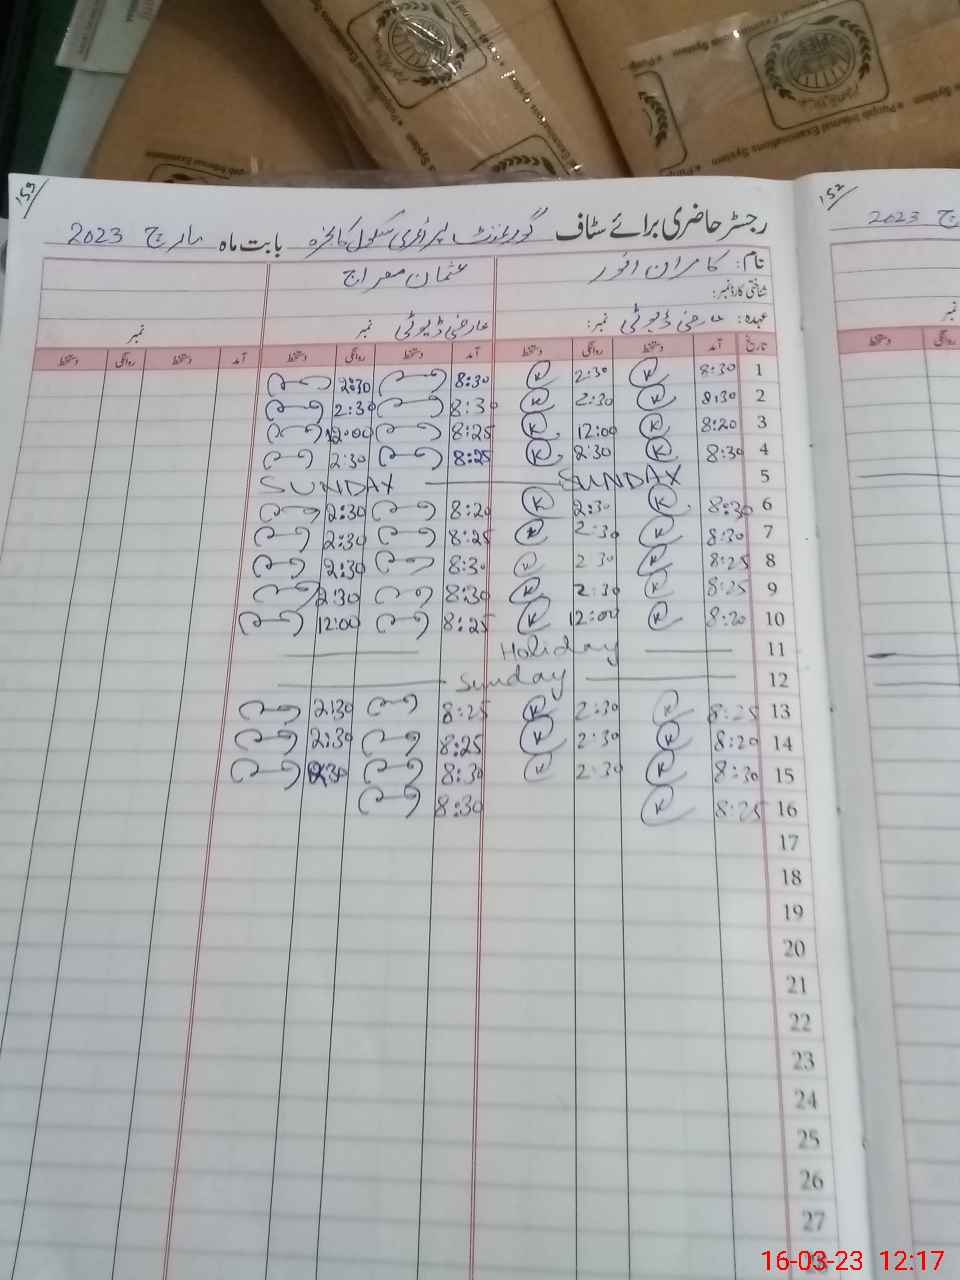 e Punjab Internal Examinations System
153
152
رجسٹر حاضری برائے سٹاف گورنمنٹ پرائمری سکول بابت ماہ مارچ 2023
مارچ 2023
نام: کامران انور عثمان معراج
شناختی کارڈ نمبر:
عہدہ: عارضی ڈیوٹی نمبر: عارضی ڈیوٹی نمبر نمبر
تاریخ آمد دستخط روانگی دستخط آمد دستخط روانگی دستخط آمد دستخط روانگی دستخط
1 8:30 K 2:30 K 8:30 2:30
2 8:30 K 2:30 K 8:30 2:30
3 8:20 K 12:00 K 8:25 12:00
4 8:30 K 2:30 K 8:25 2:30
5 SUNDAY SUNDAY
6 8:30 K 2:30 K 8:20 2:30
7 8:30 K 2:30 K 8:25 2:30
8 8:25 K 2:30 K 8:30 2:30
9 8:25 K 2:30 K 8:30 2:30
10 8:20 K 12:00 K 8:25 12:00
11 Holiday
12 Sunday
13 8:25 K 2:30 K 8:25 2:30
14 8:20 K 2:30 K 8:25 2:30
15 8:30 K 2:30 K 8:30 2:30
16 8:25 K 8:30
17
18
19
20
21
22
23
24
25
26
27
16-03-23 12:17